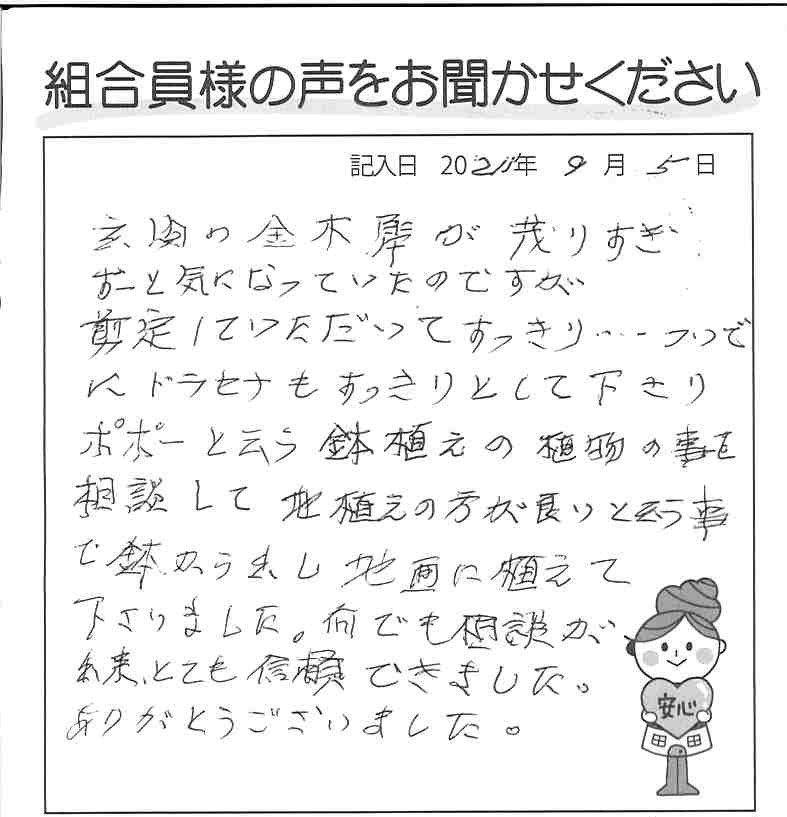 組合員様の声をお聞かせください
記入日 2021年 9月 5日
玄関の金木犀が茂りすぎ
ずーと気になっていたのですが
剪定していただいてすっきり……ついで
にドラセナもすっきりとして下さり
ポポーと云う鉢植えの植物の事を
相談して地植えの方が良いと云う事
で鉢からまし地面に植えて
下さりました。何でも相談が
出来、とても信頼できました。
ありがとうございました。
安心